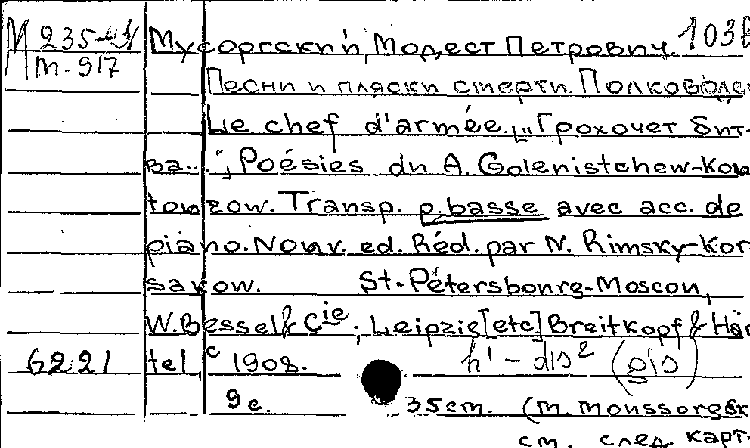 М 235-4 Мусоргский, Модест Петрович. 103
М-917
Песни и пляски смерти. Полководе
Le chef d'armée. „Грохочет бит-
ва..", Poésies du A. Golenistchew-Kou
touzow. Transp. p. basse avec acc. de
piano. Nouv. ed. Réd. par N. Rimsky-Kor
sakow. St-Pétersbourg-Moscou,
W. Bessel & Cie; Leipzig [etc] Breitkopf & Här
6221 tel, c 1908. h' - dis² (gis)
9 c. 35 cm. (M. Moussorgsk
см. след. карт.